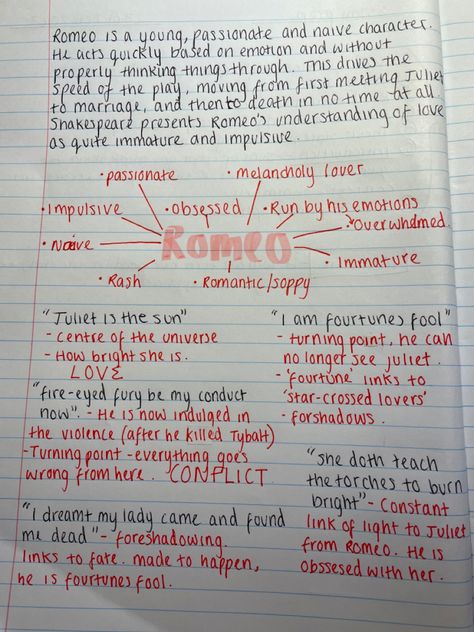 Romeo is a young, passionate and naive character.
He acts quickly based on emotion and without
properly thinking things through. This drives the
speed of the play, moving from first meeting Juliet
to marriage, and then to death in no time at all.
Shakespeare presents Romeo's understanding of love
as quite immature and impulsive.
• passionate
• melancholy lover
• Impulsive
• obsessed
• Run by his emotions
Overwhelmed.
• Naive
Romeo
• Immature
• Rash
• Romantic/soppy
"Juliet is the sun"
- centre of the universe
- How bright she is.
LOVE
"fire-eyed fury be my conduct
now". - He is now indulged in
the violence (after he killed Tybalt)
- Turning point - everything goes
wrong from here. CONFLICT
"I dreamt my lady came and found
me dead" - foreshadowing.
links to fate. made to happen,
he is fourtunes fool.
"I am fourtunes fool"
- turning point, he can
no longer see juliet.
- 'fourtune' links to
'star-crossed lovers'
- forshadows.
"She doth teach
the torches to burn
bright" - Constant
link of light to Juliet
from Romeo. He is
obssesed with her.